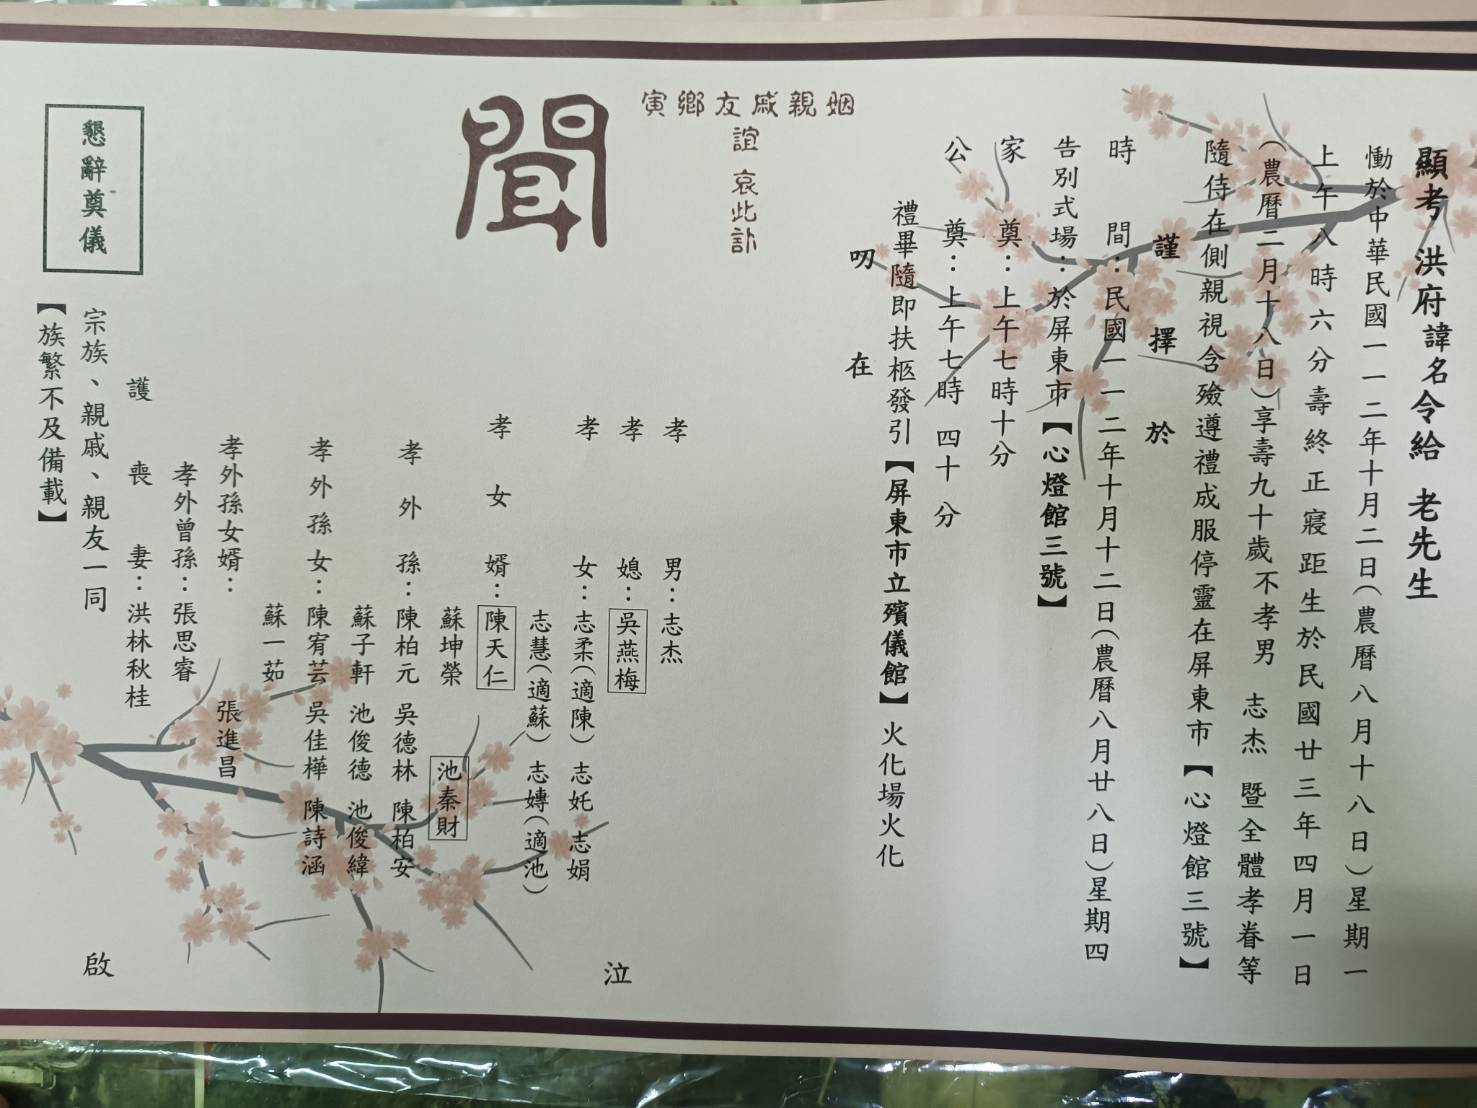 顯考 洪府諱名令給 老先生
慟於中華民國一一二年十月二日(農曆八月十八日)星期一
上午八時六分壽終正寢距生於民國廿三年四月一日
(農曆二月十八日)享壽九十歲不孝男 志杰 暨全體孝眷等
隨侍在側親視含殮遵禮成服停靈在屏東市【心燈館三號】
謹擇於
時間：民國一一二年十月十二日(農曆八月廿八日)星期四
告別式場：於屏東市【心燈館三號】
家奠：上午七時十分
公奠：上午七時四十分
禮畢隨即扶柩發引【屏東市立殯儀館】火化場火化
叨在
姻親戚友鄉寅
誼 哀此訃
聞
孝男：志杰
孝媳：吳燕梅
孝女：志柔(適陳) 志妊 志娟
志慧(適蘇) 志嫥(適池)
孝女婿：陳天仁
蘇坤榮 池秦財
孝外孫：陳柏元 吳德林 陳柏安
蘇子軒 池俊德 池俊緯
孝外孫女：陳宥芸 吳佳樺 陳詩涵
蘇一茹
孝外孫女婿： 張進昌
孝外曾孫：張思睿
護喪妻：洪林秋桂
泣
啟
宗族、親戚、親友一同
【族繁不及備載】
懇辭奠儀